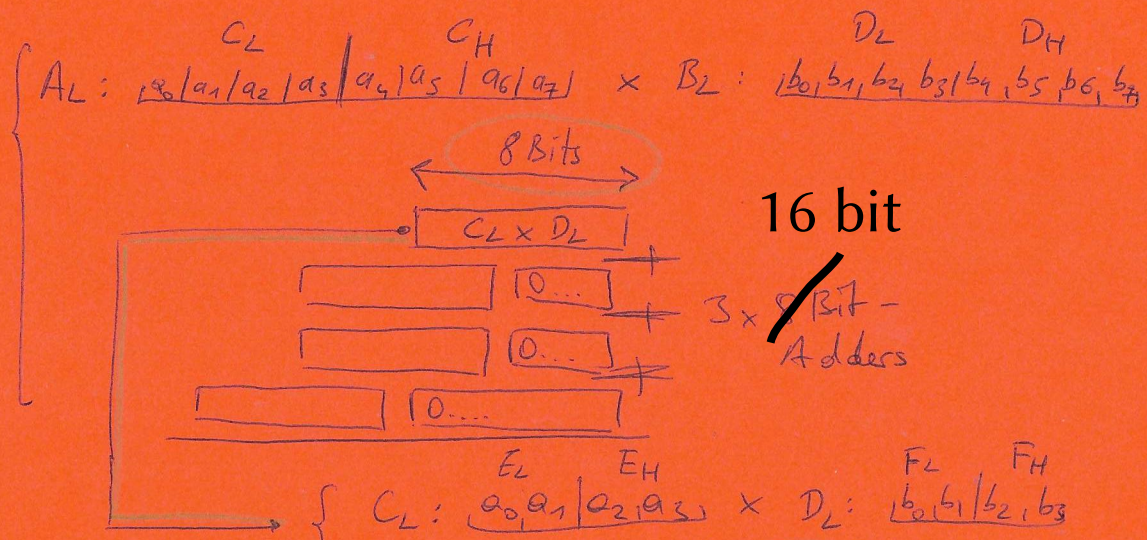 C_L C_H D_L D_H
A_L : a_0 | a_1 | a_2 | a_3 | a_4 | a_5 | a_6 | a_7 × B_L : b_0, b_1, b_2, b_3 | b_4, b_5, b_6, b_7
8 Bits
16 bit
C_L × D_L
+
0...
+ 3 × 8 Bit -
0... Adders
+
0....
E_L E_H F_L F_H
{ C_L : a_0, a_1 | a_2, a_3 × D_L : b_0, b_1 | b_2, b_3